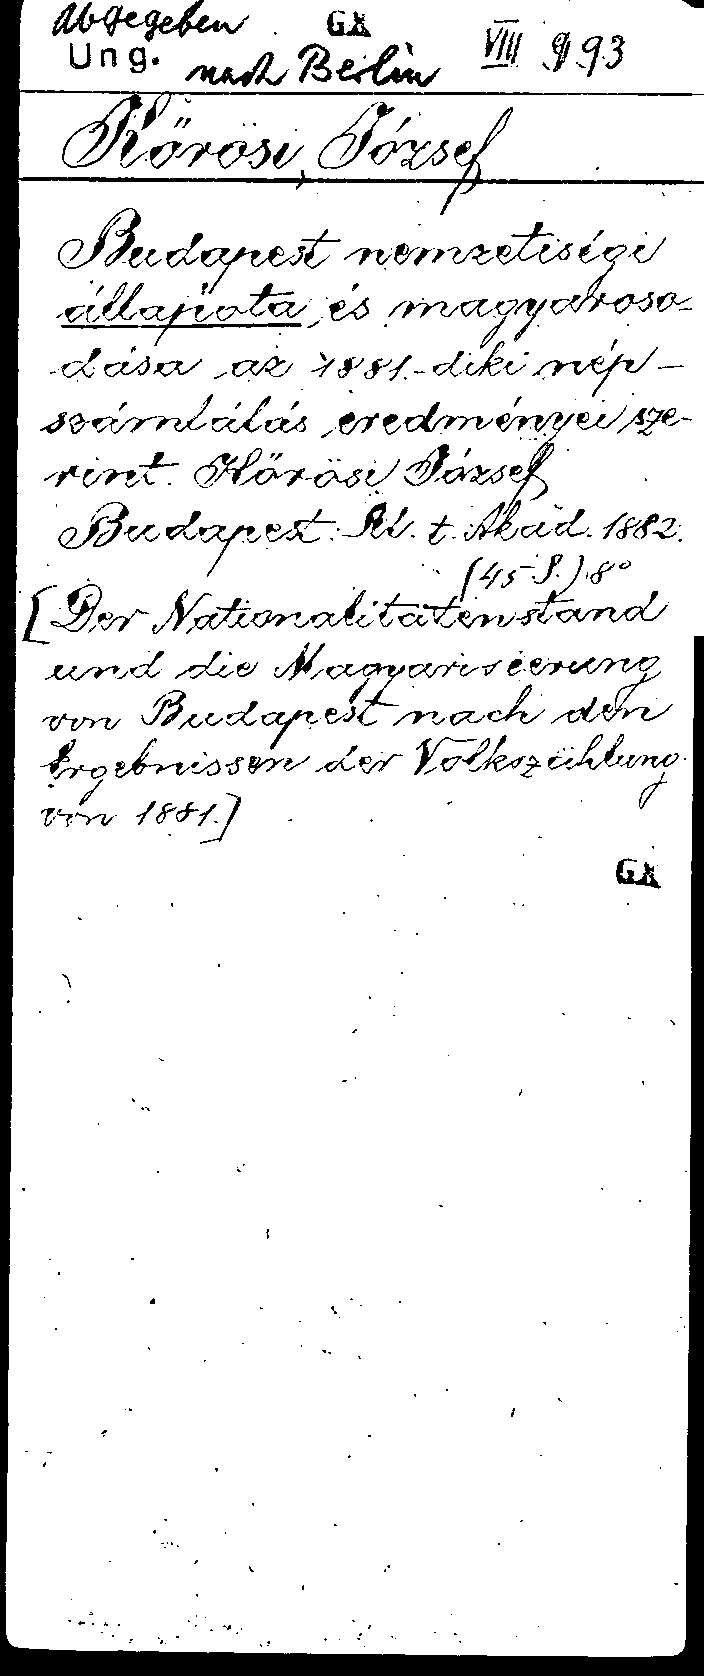 Abgegeben GX
Ung. nach Berlin VIII 993
Kőrösi, József
Budapest nemzetiségi
állapota és magyaroso-
dása az 1881.-diki nép-
számlálás eredményei sze-
rint. Kőrösi József
Budapest: Kl. t. Akad. 1882.
(45 S.) 8°
[Der Nationalitätenstand
und die Magyarisierung
von Budapest nach den
Ergebnissen der Volkszählung
von 1881.]
GX